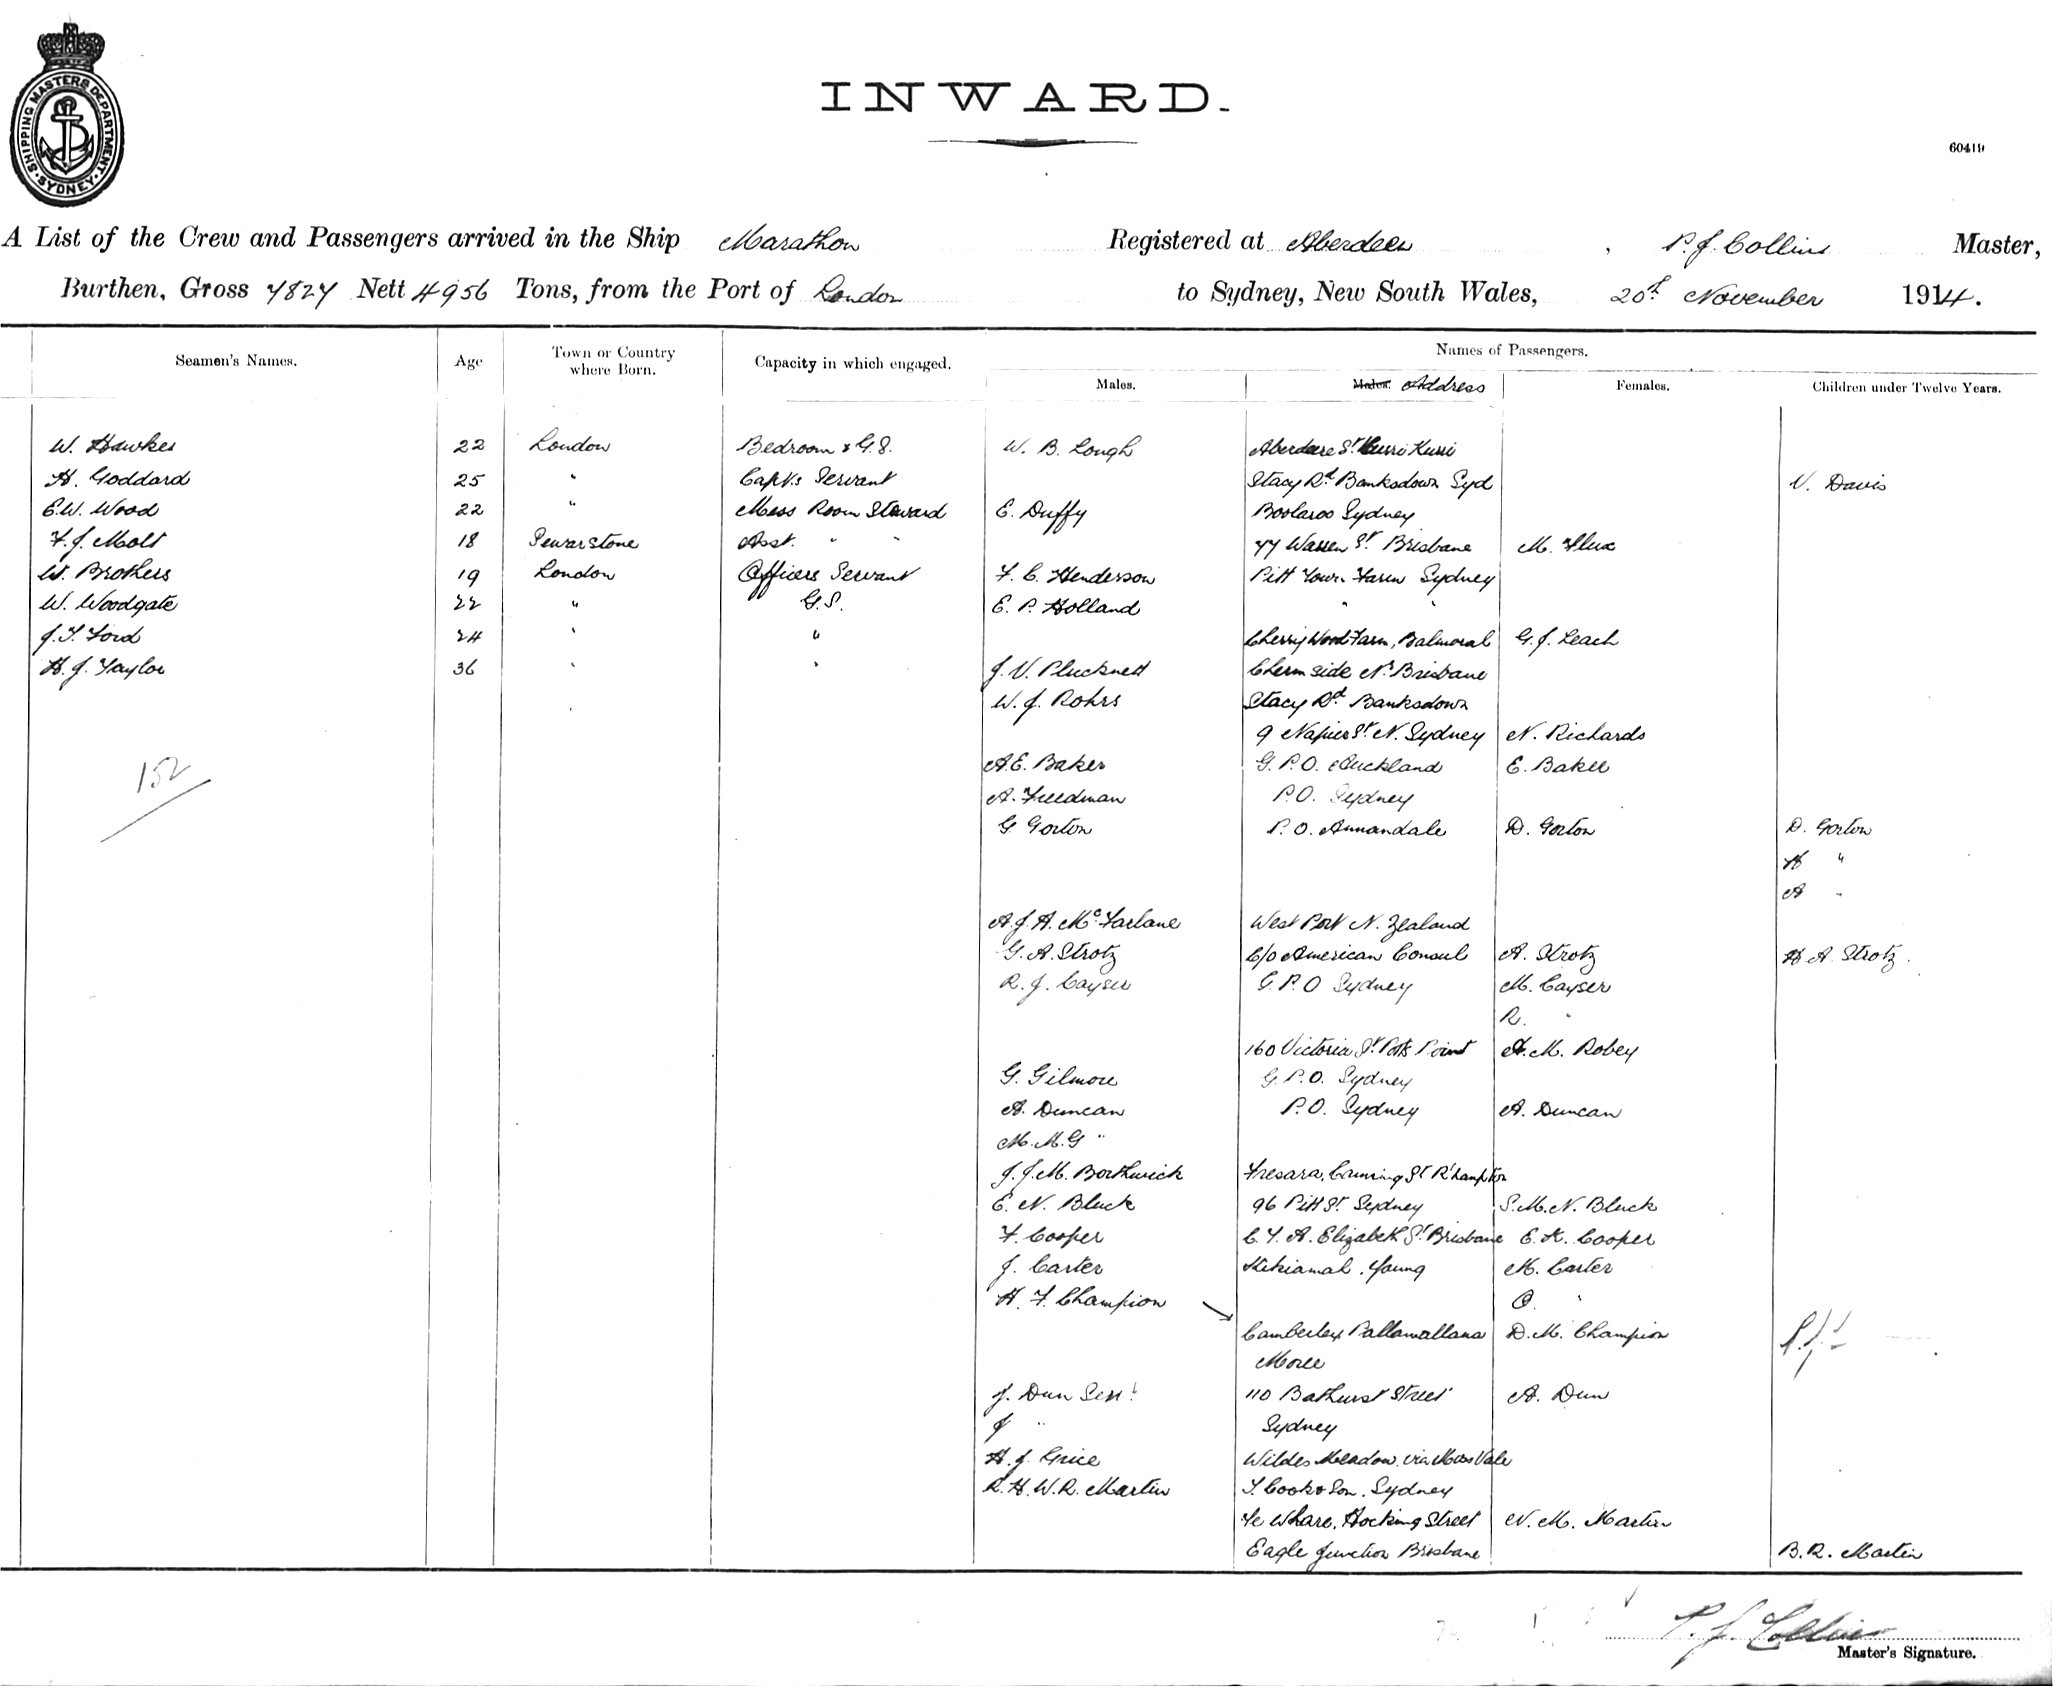 SHIPPING MASTERS DEPARTMENT · SYDNEY ·
INWARD.
60419
A List of the Crew and Passengers arrived in the Ship Marathon Registered at Aberdeen , P. J. Collins Master,
Burthen, Gross 7827 Nett 4956 Tons, from the Port of London to Sydney, New South Wales, 20th November 1914.
Seamen's Names. Age Town or Country where Born. Capacity in which engaged. Names of Passengers.
Males. Males. Address Females. Children under Twelve Years.
W. Hawkes 22 London Bedroom & G.S. W. B. Lough Aberdare St Kurri Kurri
H. Goddard 25 " Capt's Servant Stacy Rd Banksdown Syd V. Davis
E.W. Wood 22 " Mess Room Steward E. Duffy Boolaroo Sydney
F. J. Molt 18 Sewarstone Asst. " " 77 Warren St Brisbane M. Flux
W. Brothers 19 London Officers Servant F. C. Henderson Pitt Town Farm Sydney
W. Woodgate 22 " G.S. E. P. Holland " "
J. T. Ford 24 " " Cherry Wood Farm, Balmoral G. J. Leach
H. J. Taylor 36 " " J. V. Plucknett Chermside Nr Brisbane
W. J. Rohrs Stacy Rd Banksdown
9 Napier St N. Sydney N. Richards
152 A. E. Baker G. P. O. Auckland E. Baker
A. Freedman P.O. Sydney
G. Gorton P. O. Annandale D. Gorton D. Gorton
H "
A "
A. J. A. McFarlane West Port N. Zealand
G. A. Strotz C/o American Consul A. Strotz H A Strotz.
R. J. Cayser G. P. O Sydney M. Cayser
R. "
160 Victoria St Potts Point A. M. Robey
G. Gilmore G. P. O. Sydney
A. Duncan P. O. Sydney A. Duncan
M. M. G "
J. J. M. Borthwick Fresara, Cruning St R'hampton
E. N. Bluck 96 Pitt St Sydney S. M. N. Bluck
F. Cooper C. T. A. Elizabeth St Brisbane E. K. Cooper
J. Carter Kikiamah, Young M. Carter
H. F. Champion O. "
Camberley Pallamallana D. M. Champion
Moree
J. Dun Senr 110 Bathurst Street A. Dun
J " Sydney
H. J. Grice Wildes Meadow via Moss Vale
R. H. W. R. Martin T. Cook & Son, Sydney
Te Whare, Hocking Street N. M. Martin
Eagle Junction Brisbane B. R. Martin
P. J. Collins
Master's Signature.